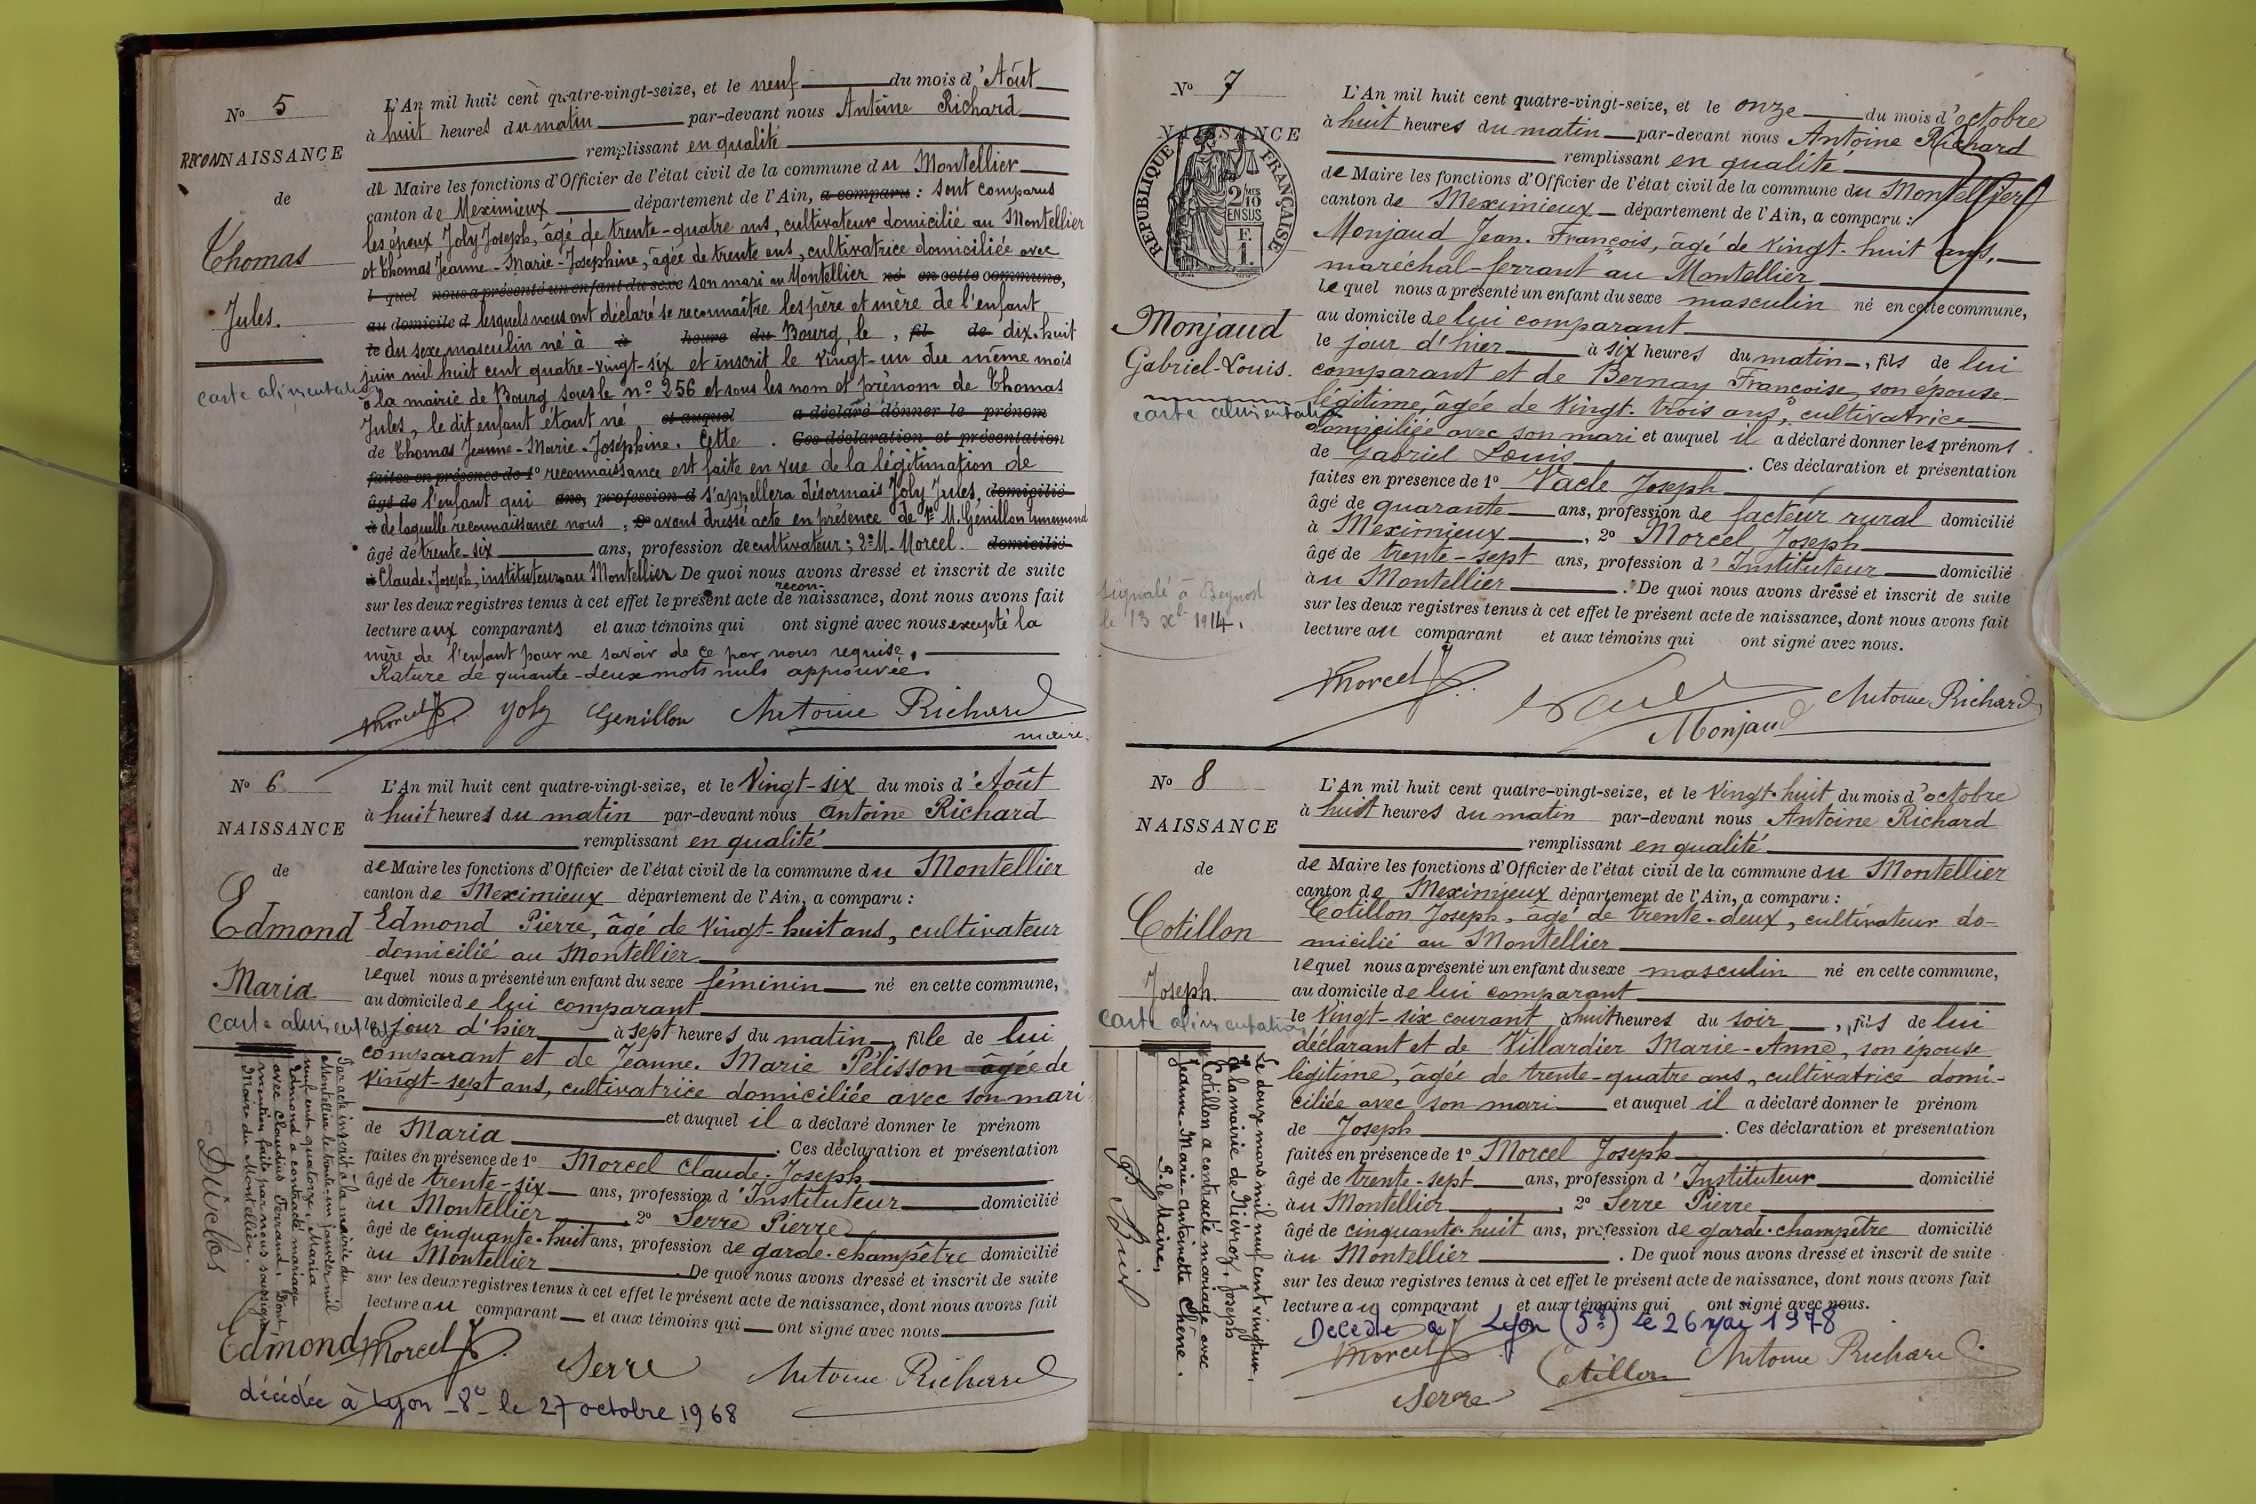 No 5
RECONNAISSANCE
de
Thomas
Jules.
carte alimentation
L'An mil huit cent quatre-vingt-seize, et le neuf du mois d'Août
à huit heures du matin par-devant nous Antoine Richard
remplissant en qualité
de Maire les fonctions d'Officier de l'état civil de la commune du Montellier
canton de Meximieux département de l'Ain, a comparu : sont comparus
les époux Joly Joseph, âgé de trente-quatre ans, cultivateur domicilié au Montellier
et Thomas Jeanne-Marie-Josephine, âgée de trente ans, cultivatrice domiciliée avec
l quel nous a présenté un enfant du sexe son mari au Montellier né en cette commune,
au domicile d lesquels nous ont déclaré se reconnaître les père et mère de l'enfant
le du sexe masculin né à à heure du Bourg, le , fil de dix-huit
juin mil huit cent quatre-vingt-six et inscrit le vingt-un du même mois
à la mairie de Bourg sous le no 256 et sous les nom et prénom de Thomas
Jules, le dit enfant étant né et auquel a déclaré donner le prénom
de Thomas Jeanne-Marie-Joséphine. Cette . Ces déclaration et présentation
faites en présence de 1o reconnaissance est faite en vue de la légitimation de
âgé de l'enfant qui ans, profession d s'appellera désormais Joly Jules, domicilié
à de laquelle reconnaissance nous , 2o avons dressé acte en présence de 1o M. Génillon Ennemond
âgé de trente-six ans, profession de cultivateur; 2o M. Morcel. domicilié
à Claude Joseph, instituteur au Montellier De quoi nous avons dressé et inscrit de suite
recon-
sur les deux registres tenus à cet effet le présent acte de naissance, dont nous avons fait
lecture aux comparants et aux témoins qui ont signé avec nous excepté la
mère de l'enfant pour ne savoir de ce par nous requise.
Rature de quarante-deux mots nuls approuvée.
Morcel Joly Genillon Antoine Richard
maire.
No 6
NAISSANCE
de
Edmond
Maria
Carte alimentation
L'An mil huit cent quatre-vingt-seize, et le Vingt-six du mois d'Août
à huit heures du matin par-devant nous Antoine Richard
remplissant en qualité
de Maire les fonctions d'Officier de l'état civil de la commune du Montellier
canton de Meximieux département de l'Ain, a comparu :
Edmond Pierre, âgé de vingt-huit ans, cultivateur
domicilié au Montellier
lequel nous a présenté un enfant du sexe féminin né en cette commune,
au domicile de lui comparant
le jour d'hier à sept heures du matin, fille de lui
comparant et de Jeanne-Marie Pélisson âgée de
vingt-sept ans, cultivatrice domiciliée avec son mari
et auquel il a déclaré donner le prénom
de Maria . Ces déclaration et présentation
faites en présence de 1o Morcel Claude-Joseph
âgé de trente-six ans, profession d'Instituteur domicilié
au Montellier , 2o Serre Pierre
âgé de cinquante-huit ans, profession de garde-champêtre domicilié
au Montellier De quoi nous avons dressé et inscrit de suite
sur les deux registres tenus à cet effet le présent acte de naissance, dont nous avons fait
lecture au comparant et aux témoins qui ont signé avec nous
Par acte inscrit à la mairie du
Montellier le trente-un janvier mil
neuf cent quatorze, Maria
Edmond a contracté mariage
avec Claudius Ferrand. Dont
mention faite par nous soussigné
Maire du Montellier.
Duclos
Edmond Morcel Serre Antoine Richard
décédée à Lyon -8e- le 27 octobre 1968
No 7
NAISSANCE
RÉPUBLIQUE FRANÇAISE
2 MES 10
EN SUS
F.
1.
Monjaud
Gabriel-Louis.
carte alimentation
signalé à Beynost
le 13 xbre 1914.
L'An mil huit cent quatre-vingt-seize, et le onze du mois d'octobre
à huit heures du matin par-devant nous Antoine Richard
remplissant en qualité
de Maire les fonctions d'Officier de l'état civil de la commune du Montellier
canton de Meximieux département de l'Ain, a comparu :
Monjaud Jean-François, âgé de vingt-huit ans,
maréchal-ferrant au Montellier
lequel nous a présenté un enfant du sexe masculin né en cette commune,
au domicile de lui comparant
le jour d'hier à six heures du matin, fils de lui
comparant et de Bernay Françoise, son épouse
légitime, âgée de vingt-trois ans, cultivatrice
domiciliée avec son mari et auquel il a déclaré donner les prénoms
de Gabriel Louis . Ces déclaration et présentation
faites en présence de 1o Vacle Joseph
âgé de quarante ans, profession de facteur rural domicilié
à Meximieux , 2o Morcel Joseph
âgé de trente-sept ans, profession d'Instituteur domicilié
au Montellier . De quoi nous avons dressé et inscrit de suite
sur les deux registres tenus à cet effet le présent acte de naissance, dont nous avons fait
lecture au comparant et aux témoins qui ont signé avec nous.
Morcel Vacle Antoine Richard
Monjaud
No 8
NAISSANCE
de
Cotillon
Joseph.
Carte alimentation
L'An mil huit cent quatre-vingt-seize, et le Vingt-huit du mois d'octobre
à huit heures du matin par-devant nous Antoine Richard
remplissant en qualité
de Maire les fonctions d'Officier de l'état civil de la commune du Montellier
canton de Meximieux département de l'Ain, a comparu :
Cotillon Joseph, âgé de trente-deux, cultivateur do-
micilié au Montellier
lequel nous a présenté un enfant du sexe masculin né en cette commune,
au domicile de lui comparant
le vingt-six courant à huit heures du soir, fils de lui
déclarant et de Villardier Marie-Anne, son épouse
légitime, âgée de trente-quatre ans, cultivatrice domi-
ciliée avec son mari et auquel il a déclaré donner le prénom
de Joseph . Ces déclaration et présentation
faites en présence de 1o Morcel Joseph
âgé de trente-sept ans, profession d'Instituteur domicilié
au Montellier , 2o Serre Pierre
âgé de cinquante-huit ans, profession de garde-champêtre domicilié
au Montellier . De quoi nous avons dressé et inscrit de suite
sur les deux registres tenus à cet effet le présent acte de naissance, dont nous avons fait
lecture au comparant et aux témoins qui ont signé avec nous.
Le douze mars mil neuf cent vingt un,
à la mairie de Niévroz, Joseph
Cotillon a contracté mariage avec
Jeanne-Marie-Antoinette Chêne.
P. le Maire,
Décédé à Lyon (5e) le 26 mai 1978
Morcel Cotillon Antoine Richard
Serre